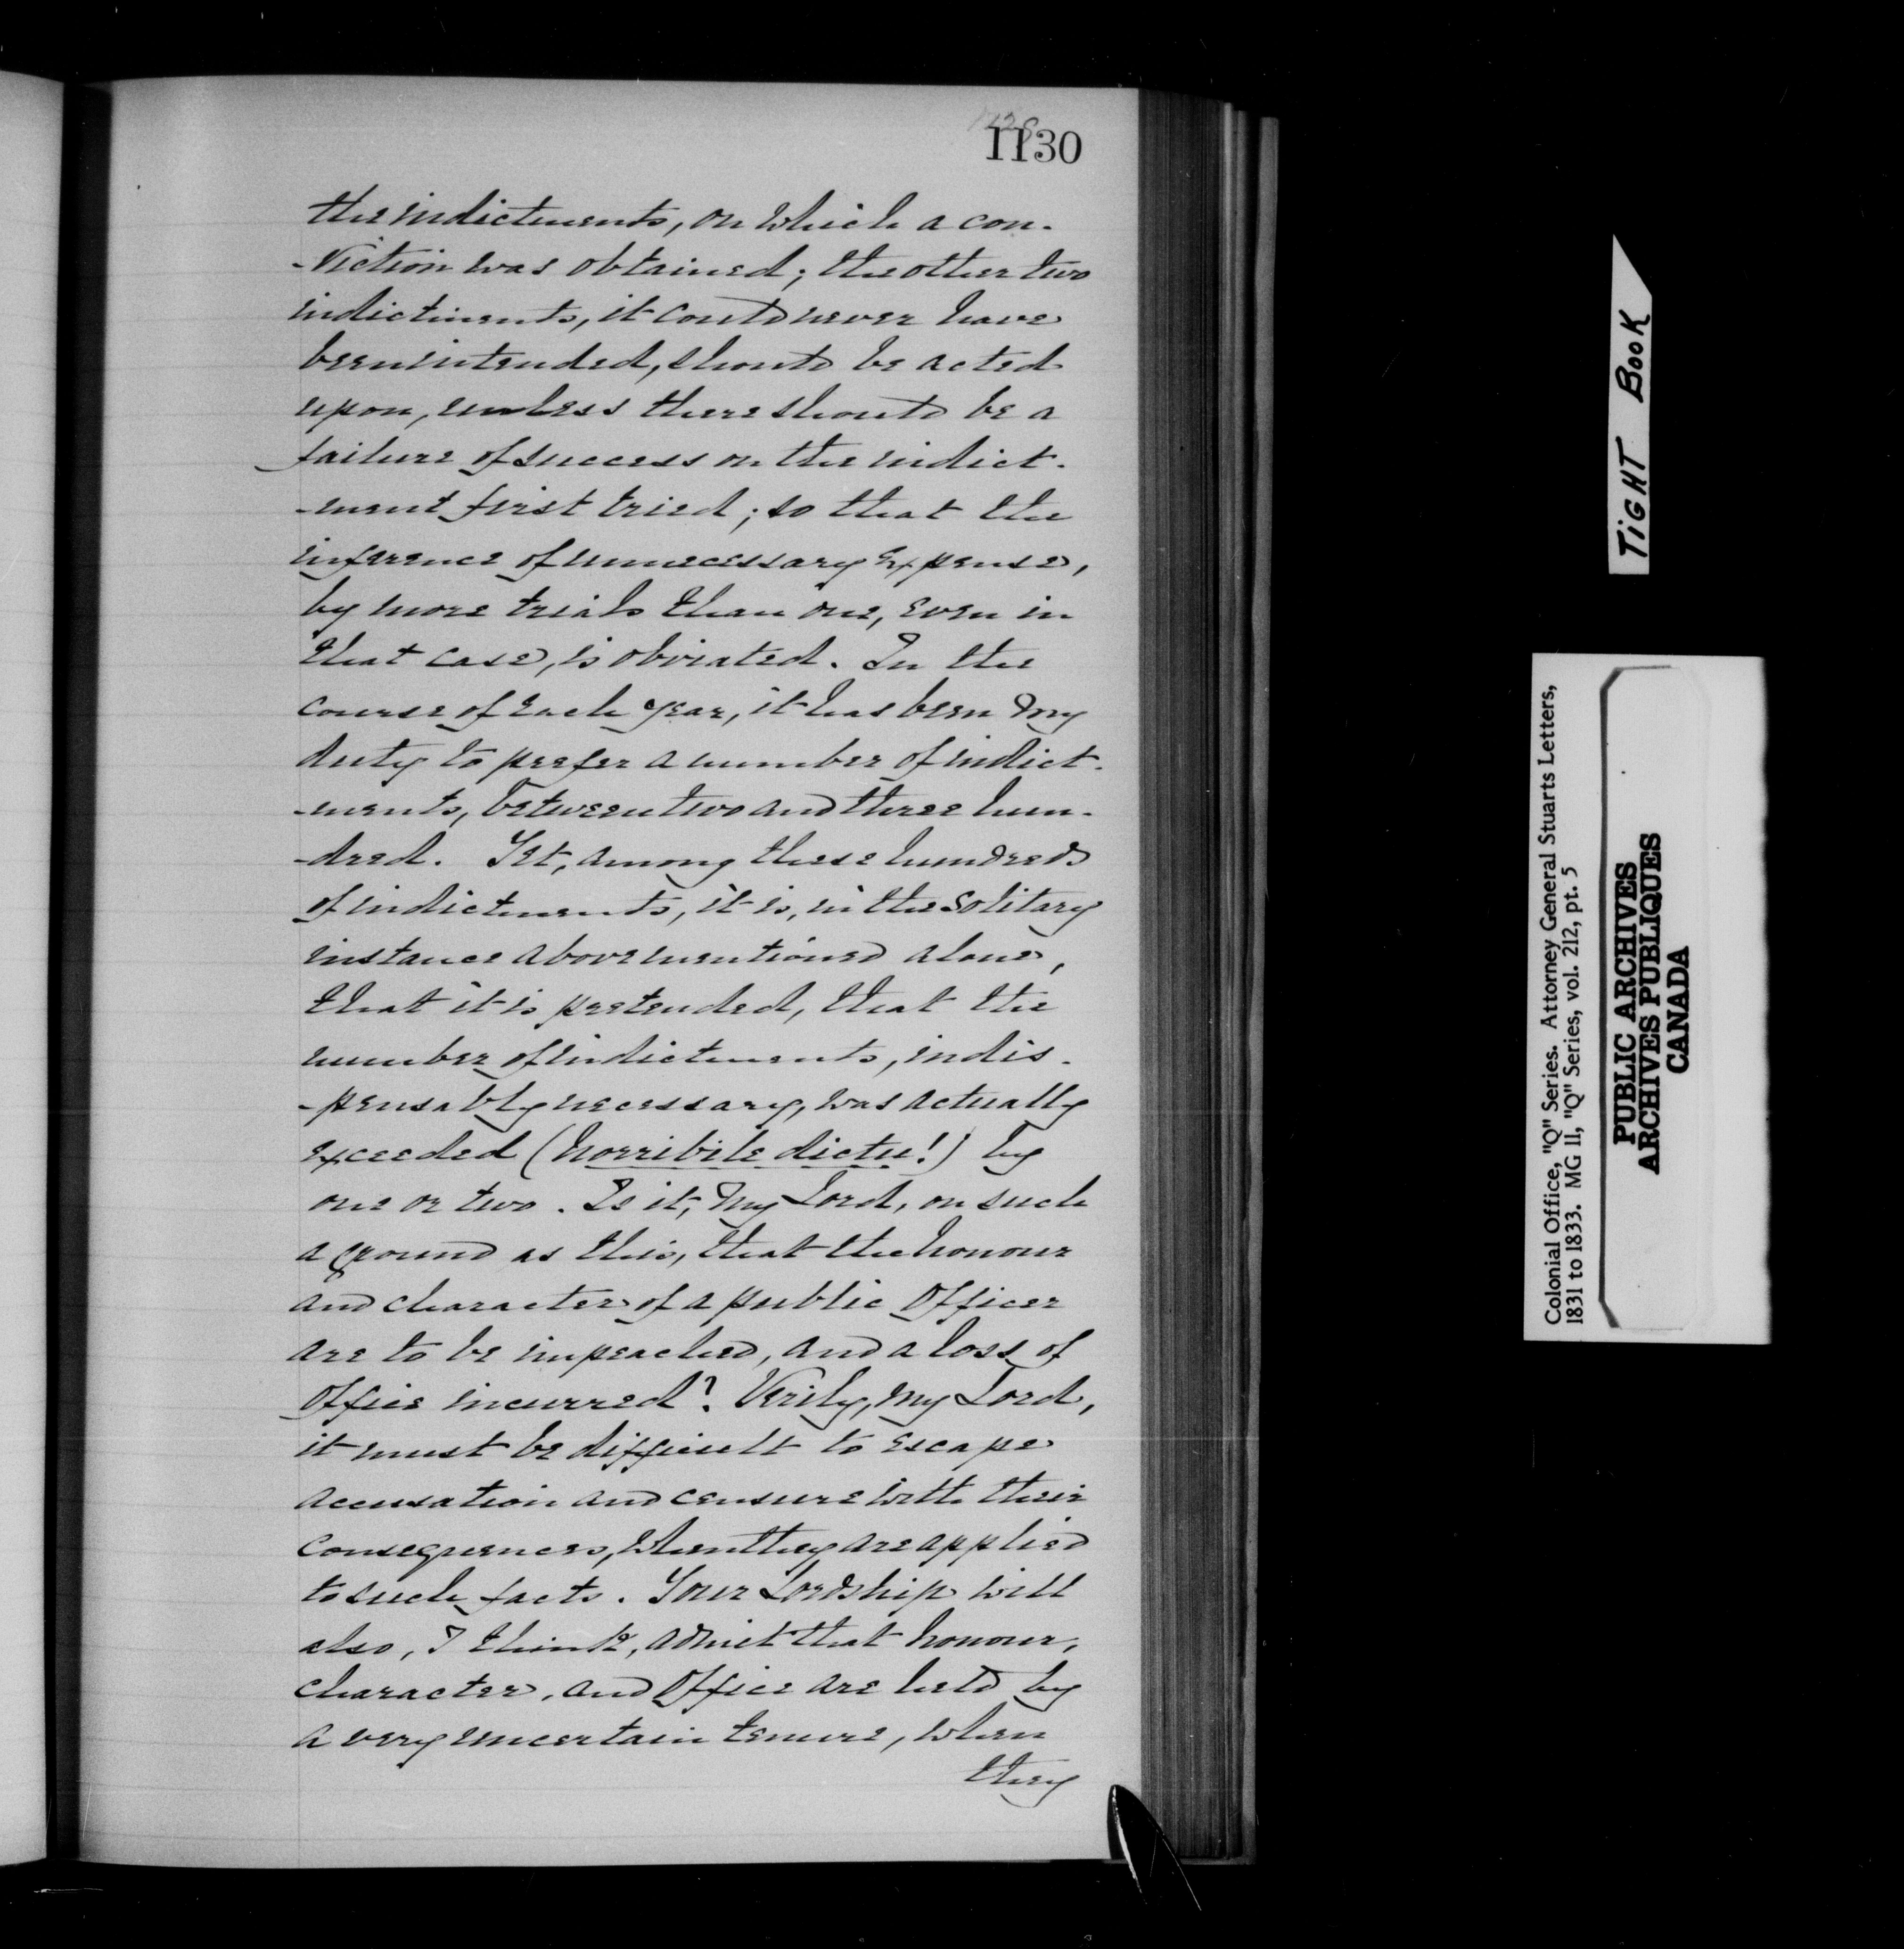 1130
the indictments, on which a con-
-viction was obtained; the other two
indictments, it could never have
been intended, should be acted
upon, unless there should be a
failure of success on the indict-
-ment first tried; so that the
inference of unnecessary expense,
by more trials than one, even in
that case, is obviated. In the
course of each year, it has been my
duty to prefer a number of indict-
-ments, between two and three hun-
-dred. Yet, among these hundreds
of indictments, it is, in the solitary
instance above mentioned alone,
that it is pretended, that the
number of indictments, indis-
-pensably necessary, was actually
exceeded (horribile dictu!) by
one or two. Is it, my Lord, on such
a ground as this, that the honour
and character of a public Officer
are to be impeached, and a loss of
Office incurred? Verily, my Lord,
it must be difficult to escape
accusation and censure with their
consequences, when they are applied
to such facts. Your Lordship will
also, I think, admit that honour,
character, and Office are held by
a very uncertain tenure, when
they
TIGHT BOOK
Colonial Office, "Q" Series. Attorney General Stuarts Letters,
1831 to 1833. MG 11, "Q" Series, vol. 212, pt. 5
PUBLIC ARCHIVES
ARCHIVES PUBLIQUES
CANADA